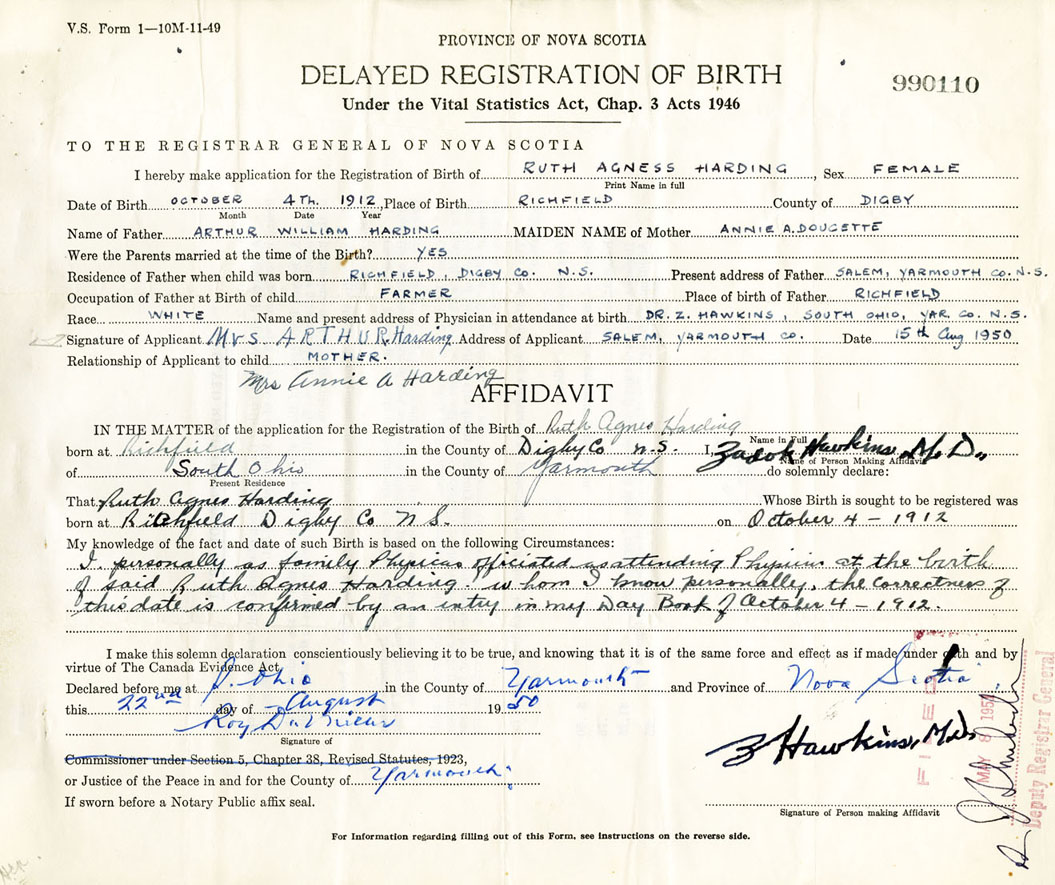 V.S. Form 1—10M-11-49
PROVINCE OF NOVA SCOTIA
DELAYED REGISTRATION OF BIRTH
990110
Under the Vital Statistics Act, Chap. 3 Acts 1946
TO THE REGISTRAR GENERAL OF NOVA SCOTIA
I hereby make application for the Registration of Birth of RUTH AGNESS HARDING, Sex FEMALE
Print Name in full
Date of Birth OCTOBER 4TH. 1912, Place of Birth RICHFIELD County of DIGBY
Month Date Year
Name of Father ARTHUR WILLIAM HARDING MAIDEN NAME of Mother ANNIE A. DOUCETTE
Were the Parents married at the time of the Birth? YES
Residence of Father when child was born RICHFIELD, DIGBY CO. N.S. Present address of Father SALEM, YARMOUTH CO. N.S.
Occupation of Father at Birth of child FARMER Place of birth of Father RICHFIELD
Race WHITE Name and present address of Physician in attendance at birth DR. Z. HAWKINS, SOUTH OHIO, YAR. CO. N.S.
Signature of Applicant Mrs ARTHUR Harding Address of Applicant SALEM, YARMOUTH CO. Date 15th Aug 1950
Relationship of Applicant to child MOTHER.
Mrs Annie A Harding
AFFIDAVIT
IN THE MATTER of the application for the Registration of the Birth of Ruth Agnes Harding
Name in Full
born at Richfield in the County of Digby Co N.S. I, Zadok Hawkins, M.D.,
Name of Person Making Affidavit
of South Ohio in the County of Yarmouth do solemnly declare:
Present Residence
That Ruth Agnes Harding Whose Birth is sought to be registered was
born at Ritchfield Digby Co N S. on October 4 - 1912
My knowledge of the fact and date of such Birth is based on the following Circumstances:
I personally as family Physican officiated as attending Physicin at the birth
of said Ruth Agnes Harding whom I know personally, the correctness of
this date is confirmed by an entry in my Day Book of October 4 - 1912.
I make this solemn declaration conscientiously believing it to be true, and knowing that it is of the same force and effect as if made under oath and by
virtue of The Canada Evidence Act.
Declared before me at S. Ohio in the County of Yarmouth and Province of Nova Scotia.
this 22nd day of August 1950
Roy
Signature of
Commissioner under Section 5, Chapter 38, Revised Statutes, 1923,
or Justice of the Peace in and for the County of Yarmouth
If sworn before a Notary Public affix seal.
Z Hawkins, M.D.
Signature of Person making Affidavit
FILED
MAY 8
Deputy Registrar General
For Information regarding filling out of this Form, see instructions on the reverse side.